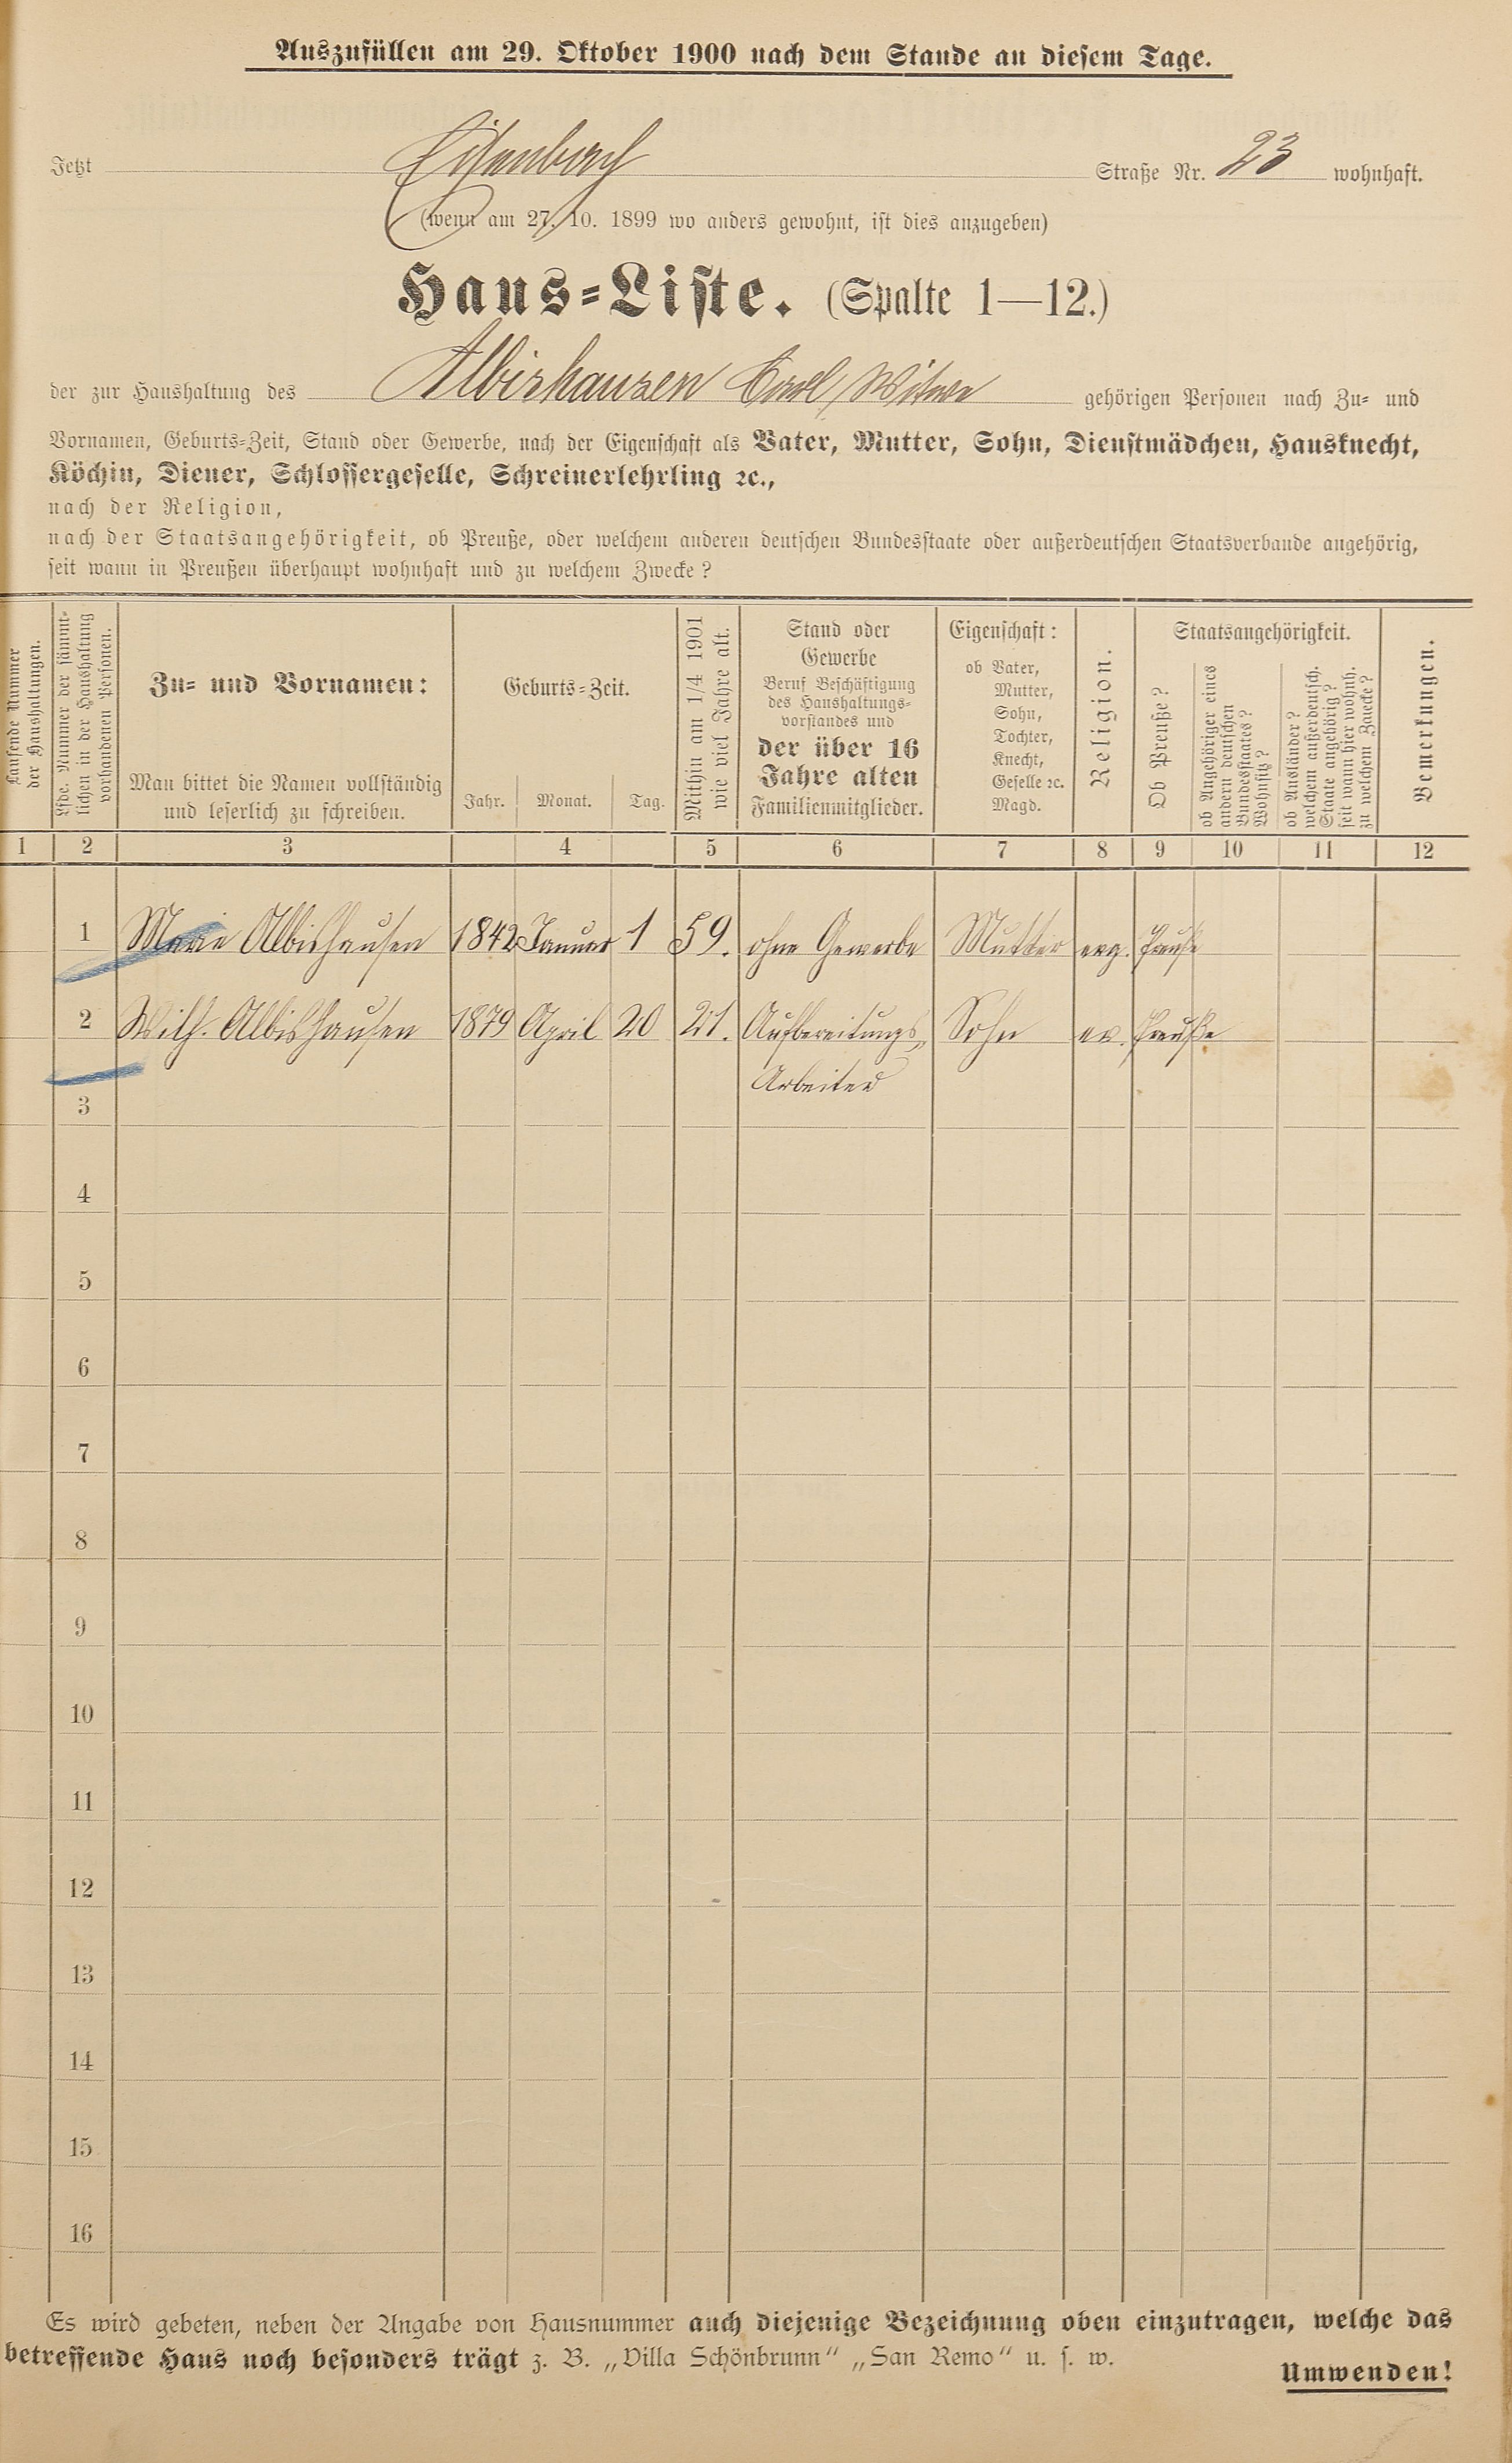 Auszufüllen am 29. Oktober 1900 nach dem Stande an diesem Tage.
Jetzt Eisenbach Straße Nr. 23 wohnhaft.
(wenn am 27. 10. 1899 wo anders gewohnt, ist dies anzugeben)
Haus-Liste. (Spalte 1—12.)
der zur Haushaltung des Albishausen Carl, Witwe gehörigen Personen nach Zu- und
Vornamen, Geburts-Zeit, Stand oder Gewerbe, nach der Eigenschaft als Vater, Mutter, Sohn, Dienstmädchen, Hausknecht,
Köchin, Diener, Schlossergeselle, Schreinerlehrling ꝛc.,
nach der Religion,
nach der Staatsangehörigkeit, ob Preuße, oder welchem anderen deutschen Bundesstaate oder außerdeutschen Staatsverbande angehörig,
seit wann in Preußen überhaupt wohnhaft und zu welchem Zwecke?
Laufende Nummer
der Haushaltungen.
Lfde. Nummer der sämmt-
lichen in der Haushaltung
vorhandenen Personen.
Zu- und Vornamen:
Man bittet die Namen vollständig
und leserlich zu schreiben.
Geburts-Zeit.
Jahr. Monat. Tag.
Mithin am 1/4 1901
wie viel Jahre alt.
Stand oder
Gewerbe
Beruf Beschäftigung
des Haushaltungs-
vorstandes und
der über 16
Jahre alten
Familienmitglieder.
Eigenschaft:
ob Vater,
Mutter,
Sohn,
Tochter,
Knecht,
Geselle ꝛc.
Magd.
Religion.
Staatsangehörigkeit.
Ob Preuße?
ob Angehöriger eines
andern deutschen
Bundesstaates?
Wohnsitz?
ob Ausländer?
welchem außerdeutsch.
Staate angehörig?
seit wann hier wohnh.
zu welchem Zwecke?
Bemerkungen.
1 2 3 4 5 6 7 8 9 10 11 12
1 Marie Albishausen 1842 Januar 1 59. ohne Gewerbe Mutter evg. Preuße
2 Wilh. Albishausen 1879 April 20 21. Aufbereitungs- Sohn ev. Preuße
Arbeiter
3
4
5
6
7
8
9
10
11
12
13
14
15
16
Es wird gebeten, neben der Angabe von Hausnummer auch diejenige Bezeichnung oben einzutragen, welche das
betreffende Haus noch besonders trägt z. B. „Villa Schönbrunn“ „San Remo“ u. s. w.
Umwenden!